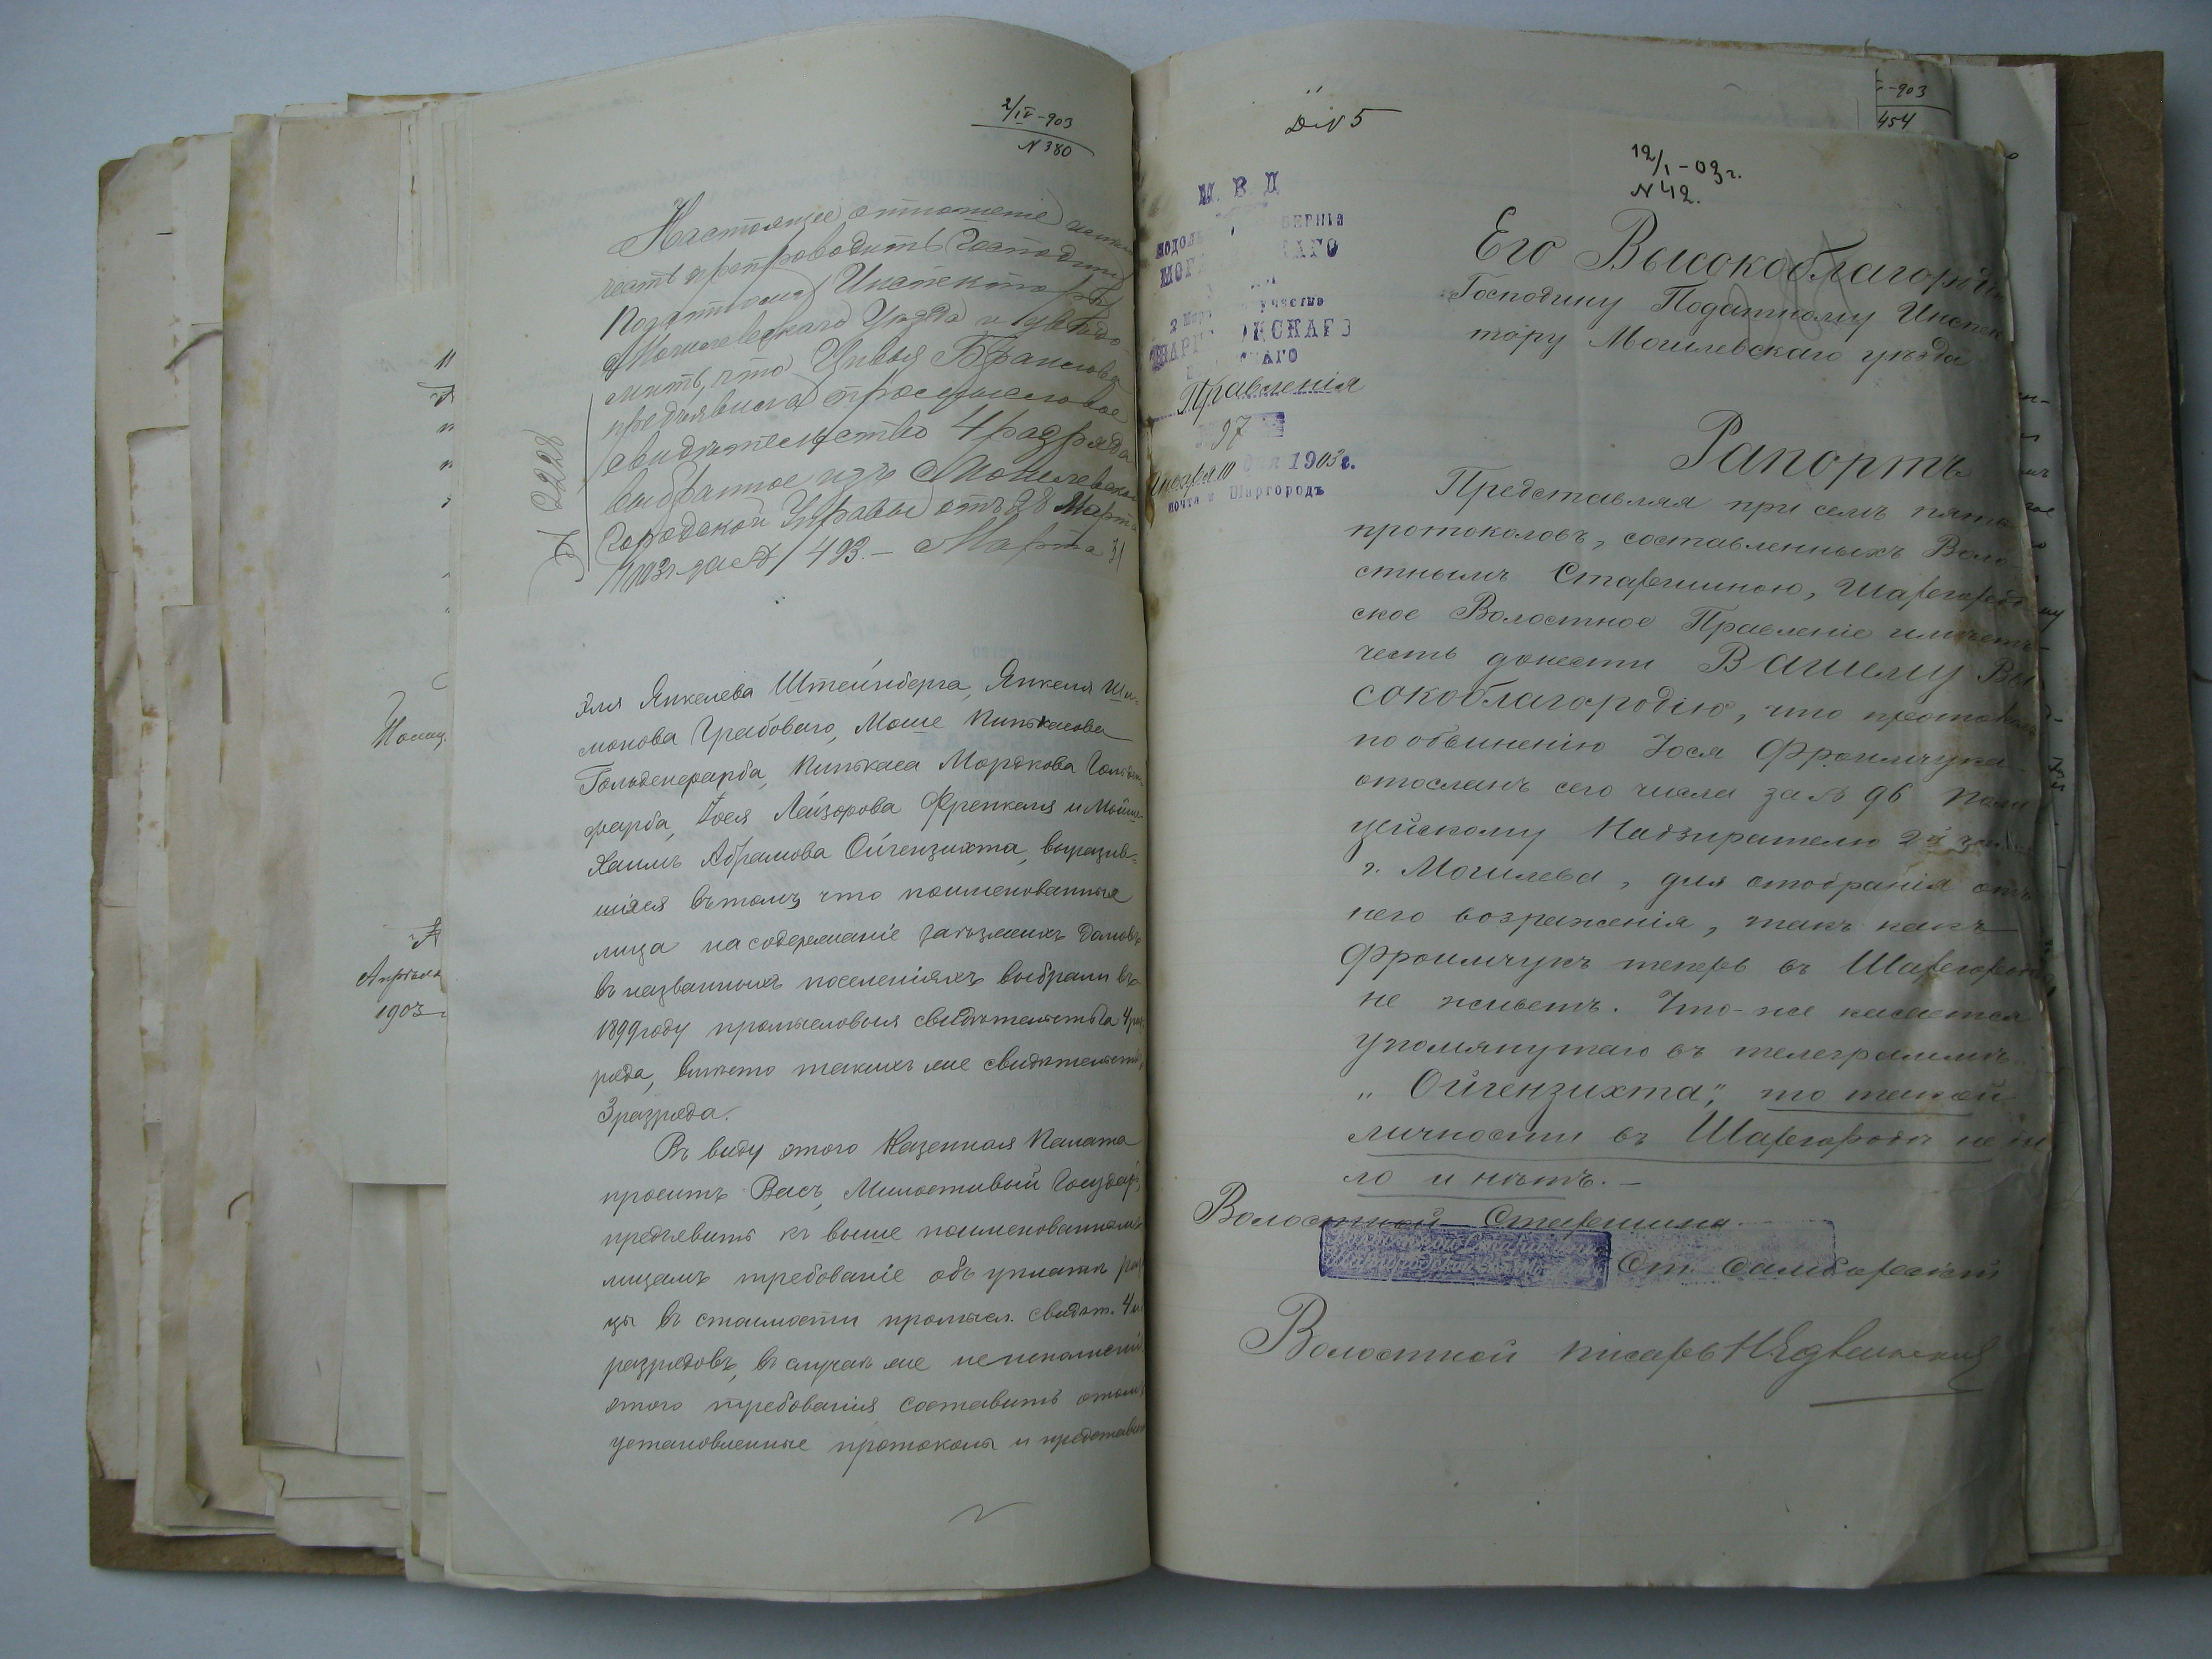 2/IV-903
N 380
Настоящее отношеніе имѣю
честь препроводить Господину
Податному Инспектору
Могилевскаго Уѣзда и увѣдо-
мить, что Цивья
предъявила промысловое
свидѣтельство 4 разряда
выбранное изъ Могилевской
Городской Управы отъ 28 Марта
1903 г за № 493.- Марта 31
№ 2228
Эля Янкелева Штейнберга, Янкеля Ши-
монова Грабоваго, Моше Пинькасова
Гольденфарба, Пинькаса Мордкова Гольден-
фарба, Іося Лейзорова Френкеля и Мойше-
Хаимъ Абрамова Ойгензихта, выразив-
шіяся въ томъ, что поименованные
лица на содержаніе заѣзжихъ домовъ
въ названныхъ поселеніяхъ выбрали въ
1899 году промысловыя свидѣтельства 4 раз-
ряда, вмѣсто такихъ же свидѣтельствъ
3 разряда.
Въ виду этого Казенная Палата
проситъ Васъ, Милостивый Государь,
предъявить къ выше поименованнымъ
лицамъ требованіе объ уплатѣ разни-
цы въ стоимости промысл. свидѣт. 4 и
разрядовъ, въ случаѣ же неисполненія
этого требованія составить о томъ
установленные протоколы и представить
Полиц.
Апрѣля
1903 г
-903
454
№ 5
12/I-03 г.
N 42.
М. В. Д.
Правленія
97
Января 10 дня 1903 г.
почта м. Шаргородъ
Его Высокоблагородію
Господину Податному Инспек
тору Могилевскаго уѣзда
Рапортъ
Представляя при семъ пять
протоколовъ, составленныхъ Воло
стнымъ Старшиною, Шаргород
ское Волостное Правленіе имѣетъ
честь донести Вашему Вы
сокоблагородію, что протоколъ
по обвиненію Іося Фроимчука
отосланъ сего числа за № 96 Поли
цейскому Надзирателю 2й части
г. Могилева, для отобранія отъ
него возраженія, такъ какъ
Фроимчукъ теперь въ Шаргородѣ
не живетъ. Что-же касается
упомянутаго въ телеграммѣ
„Ойгензихта", то такой
личности въ Шаргородѣ не бы
ло и нѣтъ.-
Волостной Старшина
Волостной писарь